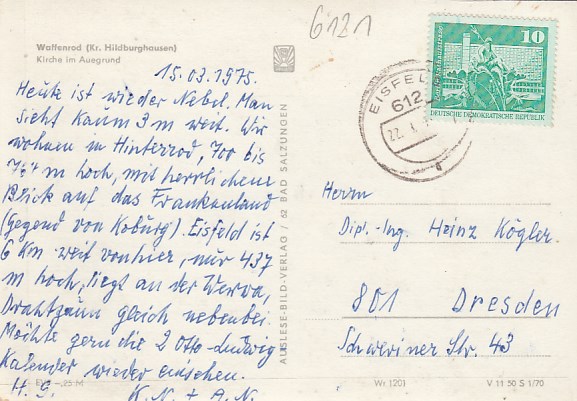 6121
Waffenrod (Kr. Hildburghausen)
Kirche im Auegrund
15.03.1975.
Heute ist wieder Nebel. Man
sieht kaum 3 m weit. Wir
wohnen in Hinterrod, 700 bis
m hoch, mit herrlichem
Blick auf das Frankenland
(Gegend von Koburg). Eisfeld ist
6 Km weit von hier, nur 437
m hoch, liegt an der Werra,
Drahtzaun gleich nebenbei.
Möchte gern die 2 Otto-Ludwig
Kalender wieder einsehen.
H. G.
K. N. + A. N.
EVP -,25 M
AUSLESE-BILD-VERLAG / 62 BAD SALZUNGEN
EISFEL
612
22.
10
DEUTSCHE DEMOKRATISCHE REPUBLIK
Herrn
Dipl.-Ing. Heinz Kögler.
801 Dresden
Schweriner Str. 43
Wr 1201
V 11 50 S 1/70